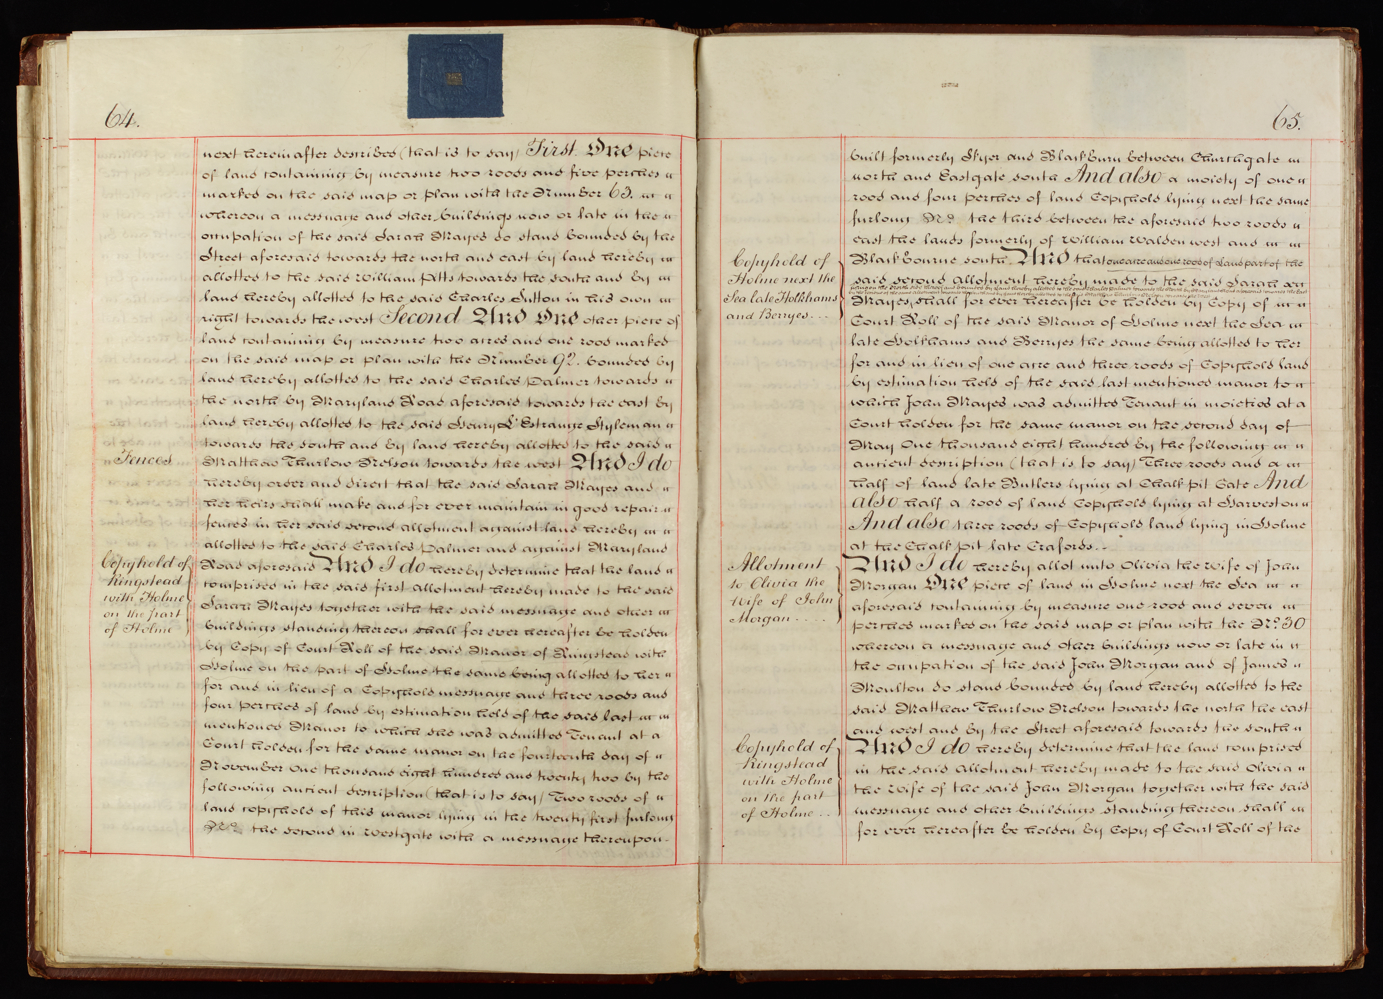 64.
next herein after described (that is to say) First One piece
of land containing by measure two roods and five perches
marked on the said map or plan with the Number 63. in
whereon a messuage and other buildings now or late in the
occupation of the said Sarah Mayes do stand bounded by the
Street aforesaid towards the north and east by land hereby
allotted to the said William Potts towards the south and by
land hereby allotted to the said Charles Sutton in his own
right towards the west Second And One other piece of
land containing by measure two acres and one rood marked
on the said map or plan with the Number 92. bounded by
land hereby allotted to the said Charles Palmer towards
the north by Maryland Road aforesaid towards the east by
land hereby allotted to the said Henry L'Estrange Styleman
towards the south and by land hereby allotted to the said
Fences
Matthew Thurlow Nelson towards the west And I do
hereby order and direct that the said Sarah Mayes and
her heirs shall make and for ever maintain in good repair
fences in her said second allotment against land hereby
allotted to the said Charles Palmer and against Maryland
Copyhold of
Ringstead
with Holme
on the part
of Holme
Road aforesaid And I do hereby determine that the land
comprised in the said first allotment hereby made to the said
Sarah Mayes together with the said messuage and other
buildings standing thereon shall for ever hereafter be holden
by Copy of Court Roll of the said Manor of Ringstead with
Holme on the part of Holme the same being allotted to her
for and in lieu of a Copyhold messuage and three roods and
four perches of land by estimation held of the said last
mentioned Manor to which she was admitted Tenant at a
Court holden for the same manor on the fourteenth day of
November One thousand eight hundred and twenty two by the
following antient description (that is to say) Two roods of
land copyhold of this manor lying in the twenty first furlong
No. the second in Westgate with a messuage thereupon
65.
built formerly Skyer and Blackburn between Churchgate
north and Eastgate south And also a moiety of one
rood and four perches of land Copyhold lying next the same
furlong No. the third between the aforesaid two roods
east the lands formerly of William Walden west and
Copyhold of
Holme next the
Sea late Holkhams
and Berryes...
Blackbourne south And that one acre and one rood of Land part of the
said second allotment hereby made to the said Sarah
Mayes, shall for ever hereafter be holden by Copy of
Court Roll of the said Manor of Holme next the Sea
late Holkhams and Berryes the same being allotted to her
for and in lieu of one acre and three roods of Copyhold land
by estimation held of the said last mentioned manor to
which John Mayes was admitted Tenant in moieties at a
Court holden for the same manor on the second day of
May One thousand eight hundred by the following
antient description (that is to say) Three roods and a
half of land late Butlers lying at Chalk pit Gate And
also half a rood of land Copyhold lying at Harveston
And also three roods of Copyhold land lying in Holme
at the Chalk pit late Crafords..
Allotment
to Olivia the
Wife of John
Morgan....
And I do hereby allot unto Olivia the Wife of John
Morgan One piece of land in Holme next the Sea
aforesaid containing by measure one rood and seven
perches marked on the said map or plan with the No. 30
whereon a messuage and other buildings now or late in
the occupation of the said John Morgan and of James
Moulton do stand bounded by land hereby allotted to the
said Matthew Thurlow Nelson towards the north the east
and west and by the Street aforesaid towards the south
Copyhold of
Ringstead
with Holme
on the part
of Holme...
And I do hereby determine that the land comprised
in the said allotment hereby made to the said Olivia
the Wife of the said John Morgan together with the said
messuage and other buildings standing thereon shall
for ever hereafter be holden by Copy of Court Roll of the